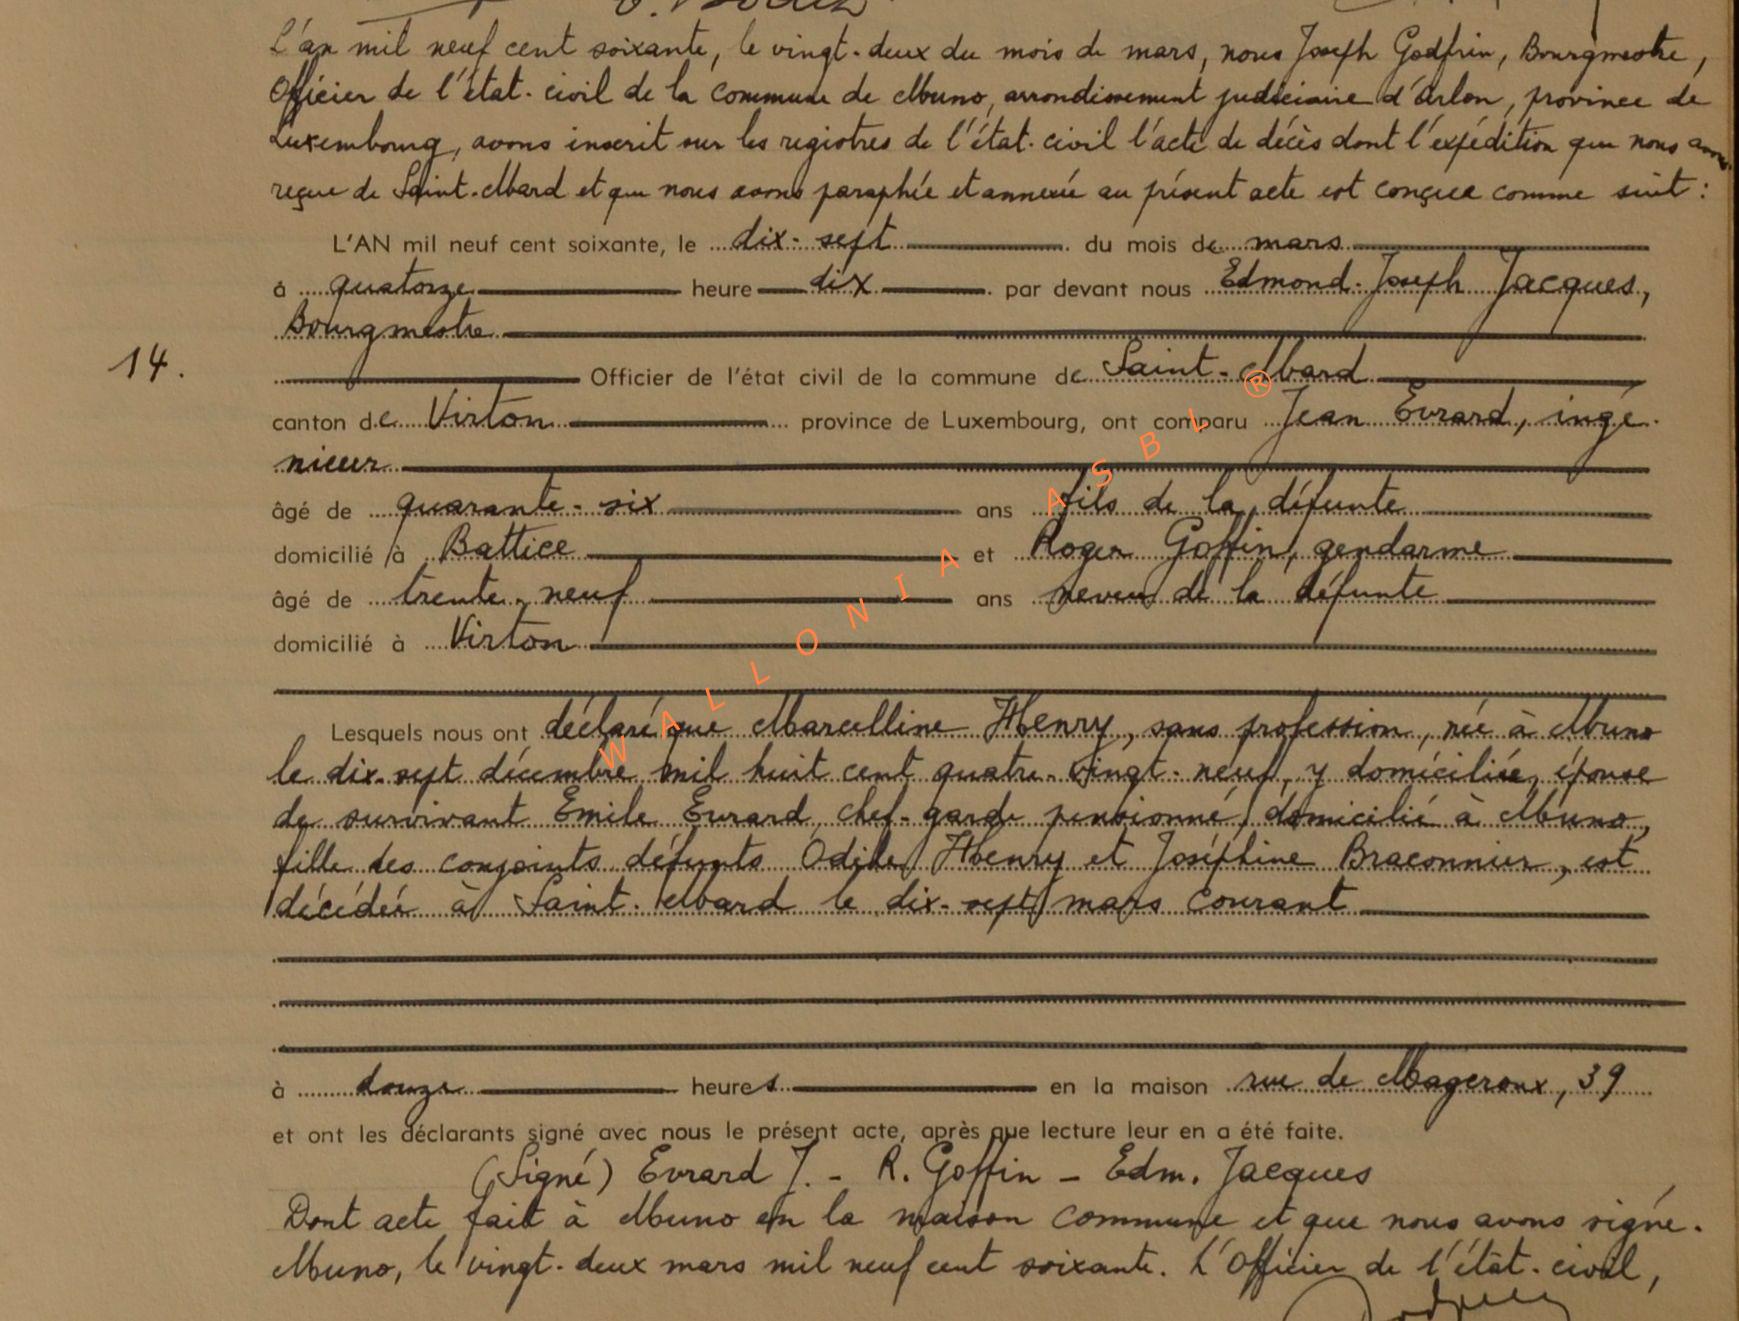 L'an mil neuf cent soixante, le vingt-deux du mois de mars, nous Joseph Godfrin, Bourgmestre,
Officier de l'état-civil de la commune de Muno, arrondissement judiciaire d'Arlon, province de
Luxembourg, avons inscrit sur les registres de l'état-civil l'acte de décès dont l'expédition que nous avons
reçue de Saint-Mard et que nous avons paraphée et annexée au présent acte est conçue comme suit :
L'AN mil neuf cent soixante, le dix-sept du mois de mars
à quatorze heure dix par devant nous Edmond-Joseph Jacques,
Bourgmestre
14.
Officier de l'état civil de la commune de Saint-Mard
canton de Virton province de Luxembourg, ont comparu Jean Evrard, ingé-
nieur
âgé de quarante-six ans fils de la défunte
domicilié à Battice et Roger Goffin, gendarme
âgé de trente-neuf ans neveu de la défunte
domicilié à Virton
Lesquels nous ont déclaré que Marcelline Henry, sans profession, née à Muno
le dix-sept décembre mil huit cent quatre-vingt-neuf, y domiciliée, épouse
de survivant Emile Evrard, chef-garde pensionné, domicilié à Muno,
fille des conjoints défunts Odile Henry et Joséphine Braconnier, est
décédée à Saint-Mard le dix-sept mars courant
à douze heures en la maison rue de Mageroux, 39
et ont les déclarants signé avec nous le présent acte, après que lecture leur en a été faite.
(Signé) Evrard J. - R. Goffin - Edm. Jacques
Dont acte fait à Muno en la maison commune et que nous avons signé.
Muno, le vingt-deux mars mil neuf cent soixante. L'Officier de l'état-civil,
WALLONIA ASBL ®